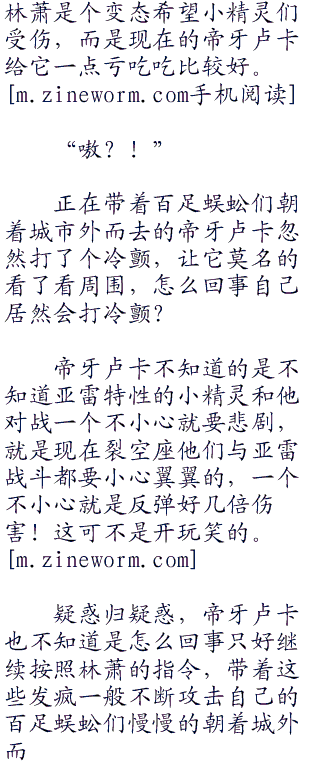 林萧是个变态希望小精灵们
受伤，而是现在的帝牙卢卡
给它一点亏吃吃比较好。
[m.zineworm.com手机阅读]
“嗷？！”
正在带着百足蜈蚣们朝
着城市外而去的帝牙卢卡忽
然打了个冷颤，让它莫名的
看了看周围，怎么回事自己
居然会打冷颤？
帝牙卢卡不知道的是不
知道亚雷特性的小精灵和他
对战一个不小心就要悲剧，
就是现在裂空座他们与亚雷
战斗都要小心翼翼的，一个
不小心就是反弹好几倍伤
害！这可不是开玩笑的。
[m.zineworm.com]
疑惑归疑惑，帝牙卢卡
也不知道是怎么回事只好继
续按照林萧的指令，带着这
些发疯一般不断攻击自己的
百足蜈蚣们慢慢的朝着城外
而